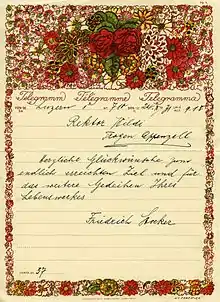 Telegramm Telegramme Telegramma
Luzern
Rektor Wildi
Trogen Appenzell
herzliche Glückwünsche zum
endlich erreichten Ziel und für
das weitere Gedeihen Ihres
Lebenswerkes
Friedrich Hocker
37